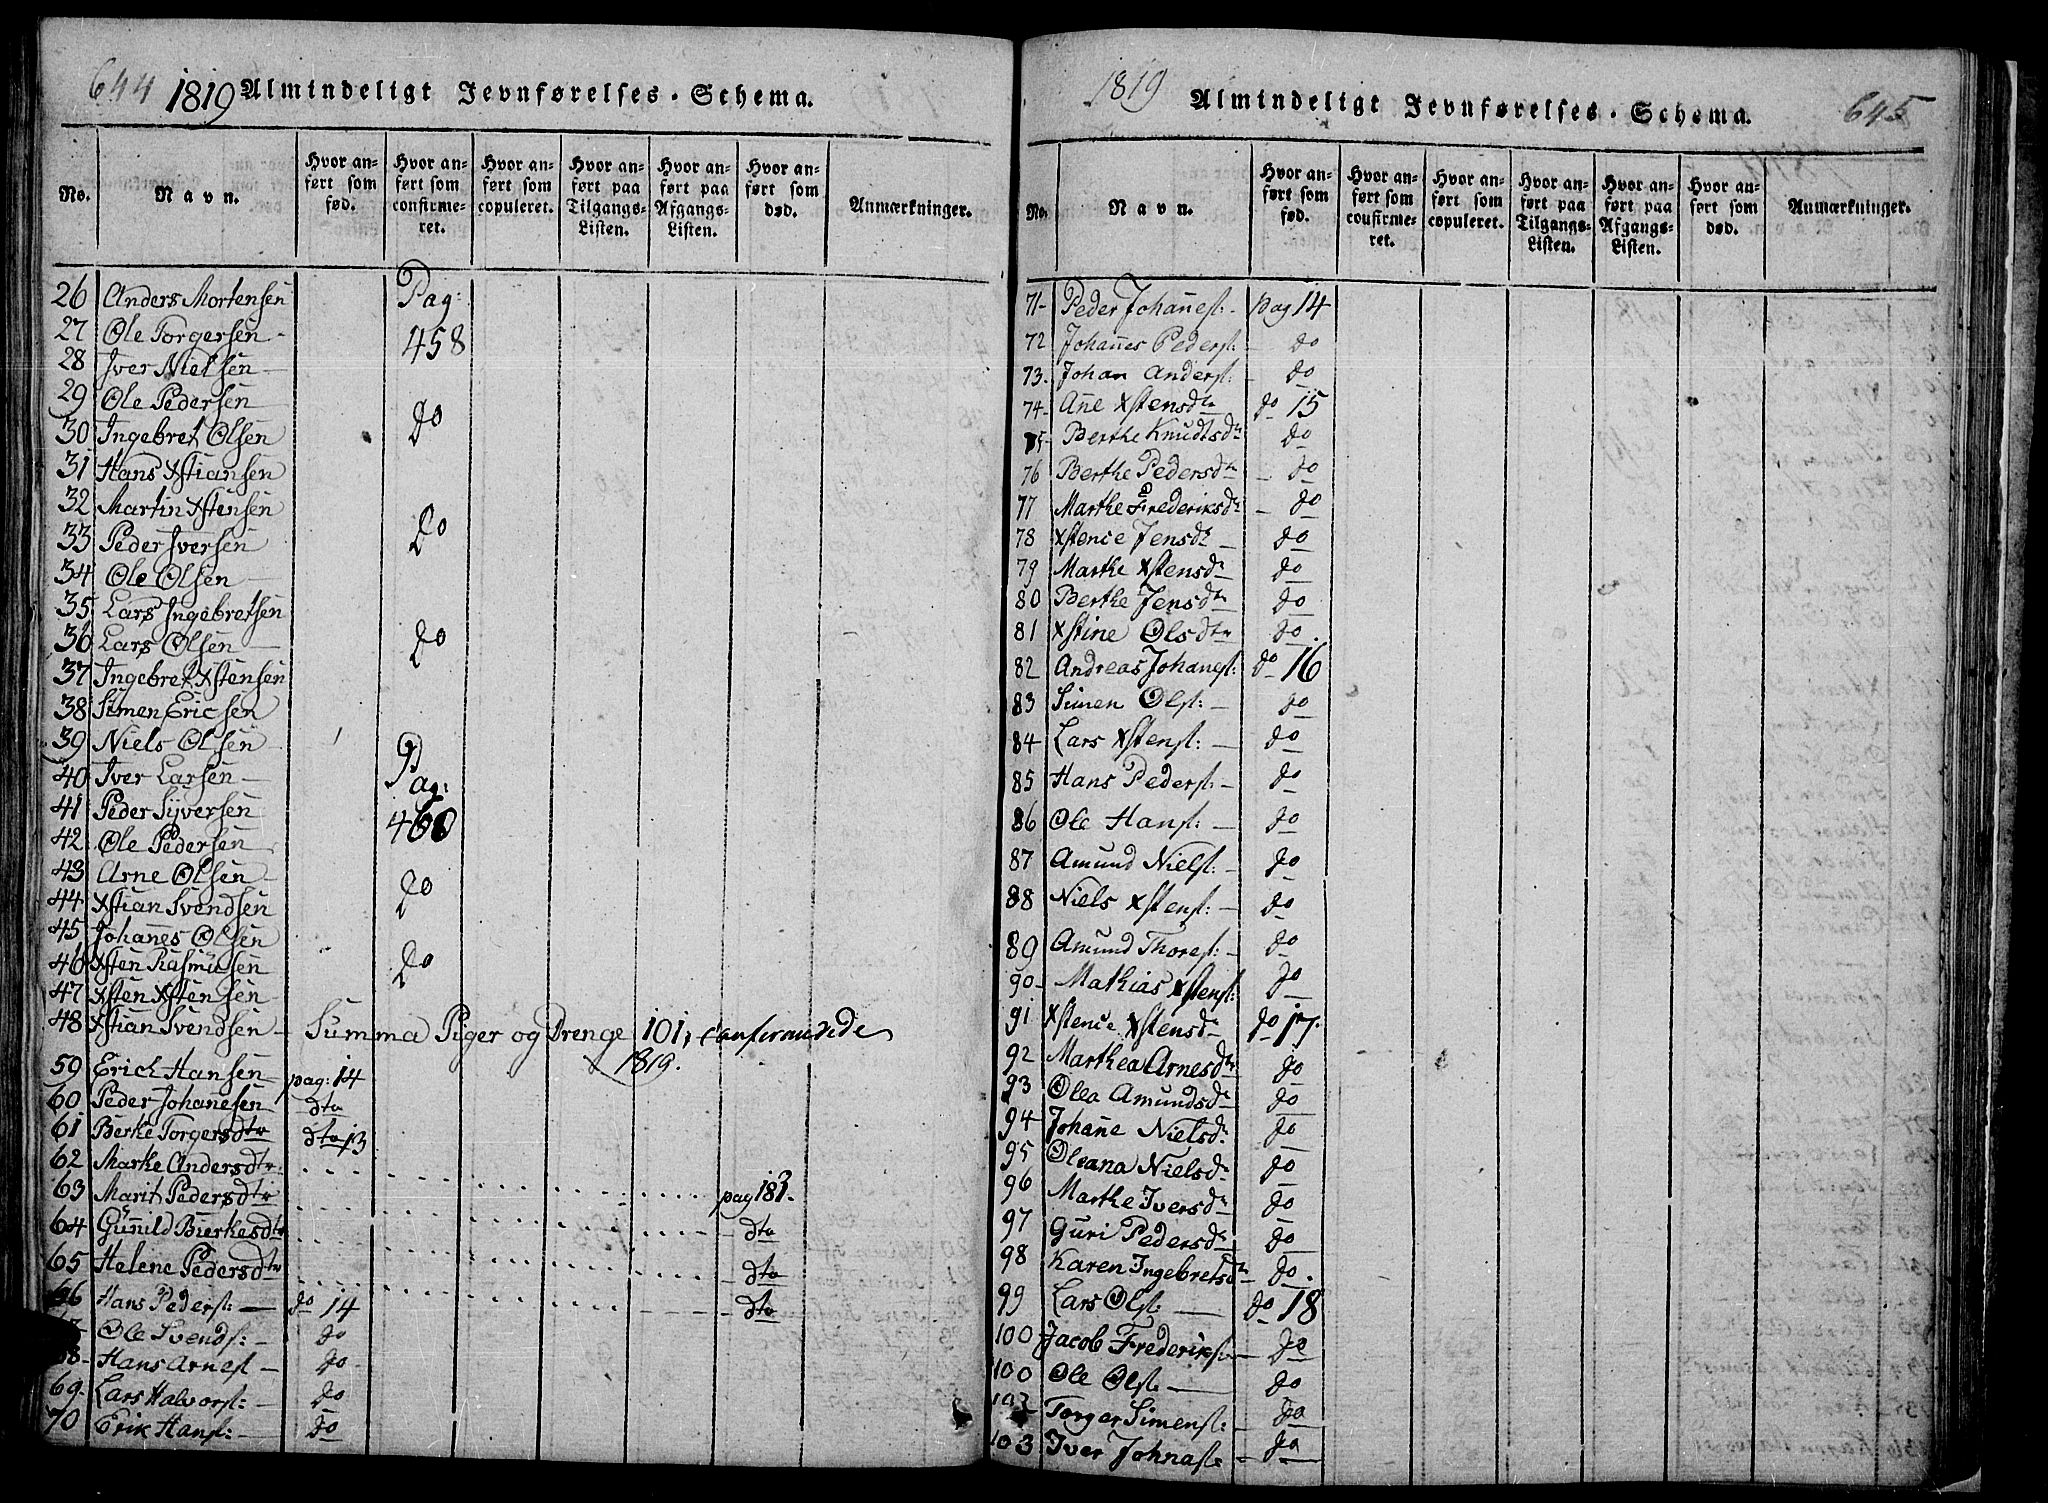 644 1819 Almindeligt Jevnførelses-Schema.
No. Navn. Hvor anført som fød. Hvor anført som confirmeret. Hvor anført som copuleret. Hvor anført paa Tilgangs-Listen. Hvor anført paa Afgangs-Listen. Hvor anført som død. Anmærkninger.
26 Anders Mortensen Pag:
27 Ole Torgersen 458
28 Iver Nielsen
29 Ole Pedersen do
30 Ingebret Olsen
31 Hans Xstiansen
32 Martin Xstensen do
33 Peder Iversen
34 Ole Olsen
35 Lars Ingebretsen
36 Lars Olsen do
37 Ingebret Xstensen
38 Simen Ericsen
39 Niels Olsen Pag:
40 Iver Larsen
41 Peder Syversen 460
42 Ole Pedersen
43 Arne Olsen do
44 Xstian Svendsen
45 Johanes Olsen
46 Xsten Rasmusen do
47 Xsten Xstensen
48 Xstian Svendsen - Summa Piger og Drenge 101, confirmerede
1819.
59 Erich Hansen pag: 14
60 Peder Johanesen dto
61 Berte Torgersdtr dto 13
62 Marke Andersdtr: pag 183.
63 Marit Pedersdtr dto
64 Gunild Bierkesdtr dto
65 Helene Pedersdtr dto
66 Hans Peders: do 14
Ole Svends: do
68- Hans Arnes do
69. Lars Halvors: do
70 Erik Hans: do
1819 Almindeligt Jevnførelses-Schema. 645
No. Navn. Hvor anført som fød. Hvor anført som confirmeret. Hvor anført som copuleret. Hvor anført paa Tilgangs-Listen. Hvor anført paa Afgangs-Listen. Hvor anført som død. Anmærkninger.
71- Peder Johanes: pag 14
72 Johanes Peders: do
73. Johan Anders: do
74- Ane Xstensdtr do 15
75- Berthe Knudtsdtr do
76 Berthe Pedersdtr do
77 Marthe Frederiksdtr do
78 Xstence Jensdtr do
79 Marthe Xstensdtr do
80 Berthe Jensdtr do
81 Xstine Olsdtr do.
82 Andreas Johanes: do 16
83 Simen Ols: do
84 Lars Xstens: do
85 Hans Peders: do
86 Ole Hans: do
87 Amund Niels: do
88 Niels Xstens: do
89 Amund Thores: do
90- Mathias Xstens: do
91 Xstence Xstensdtr do 17.
92 Marthea Arnesdtr do
93 Olea Amundsdtr do
94- Johane Nielsdtr do
95 Oleana Nielsdtr do
96 Marthe Iversdtr do
97 Guri Pedersdtr do
98 Karen Ingebretsdtr do.
99 Lars Ols: do 18
100 Jacob Frederiks: do
100 Ole Ols: do
102 Torger Simens: do
103 Iver Johnas: do